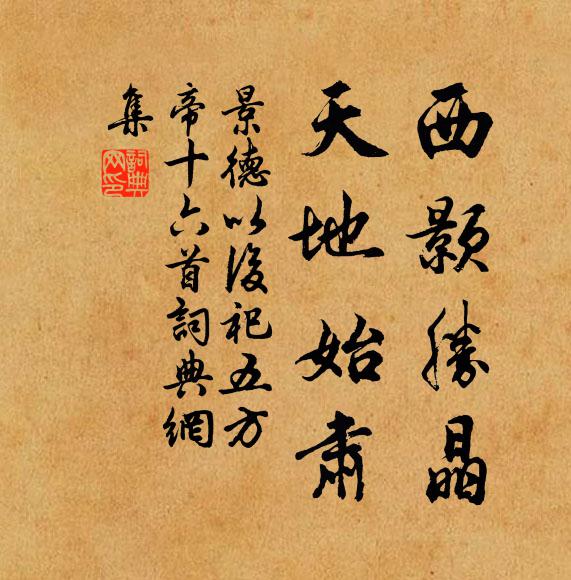 西顥騰晶
天地始肅
景德以後祀五方
帝十六首詞典網
集
詞典
网印